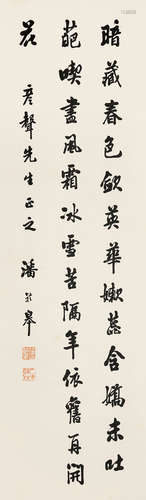 暗藏春色斂英華嫩蕊含嬌未吐
葩喫盡風霜冰雪苦隔年依舊再開
花
彥聲先生正之 潘齡皋